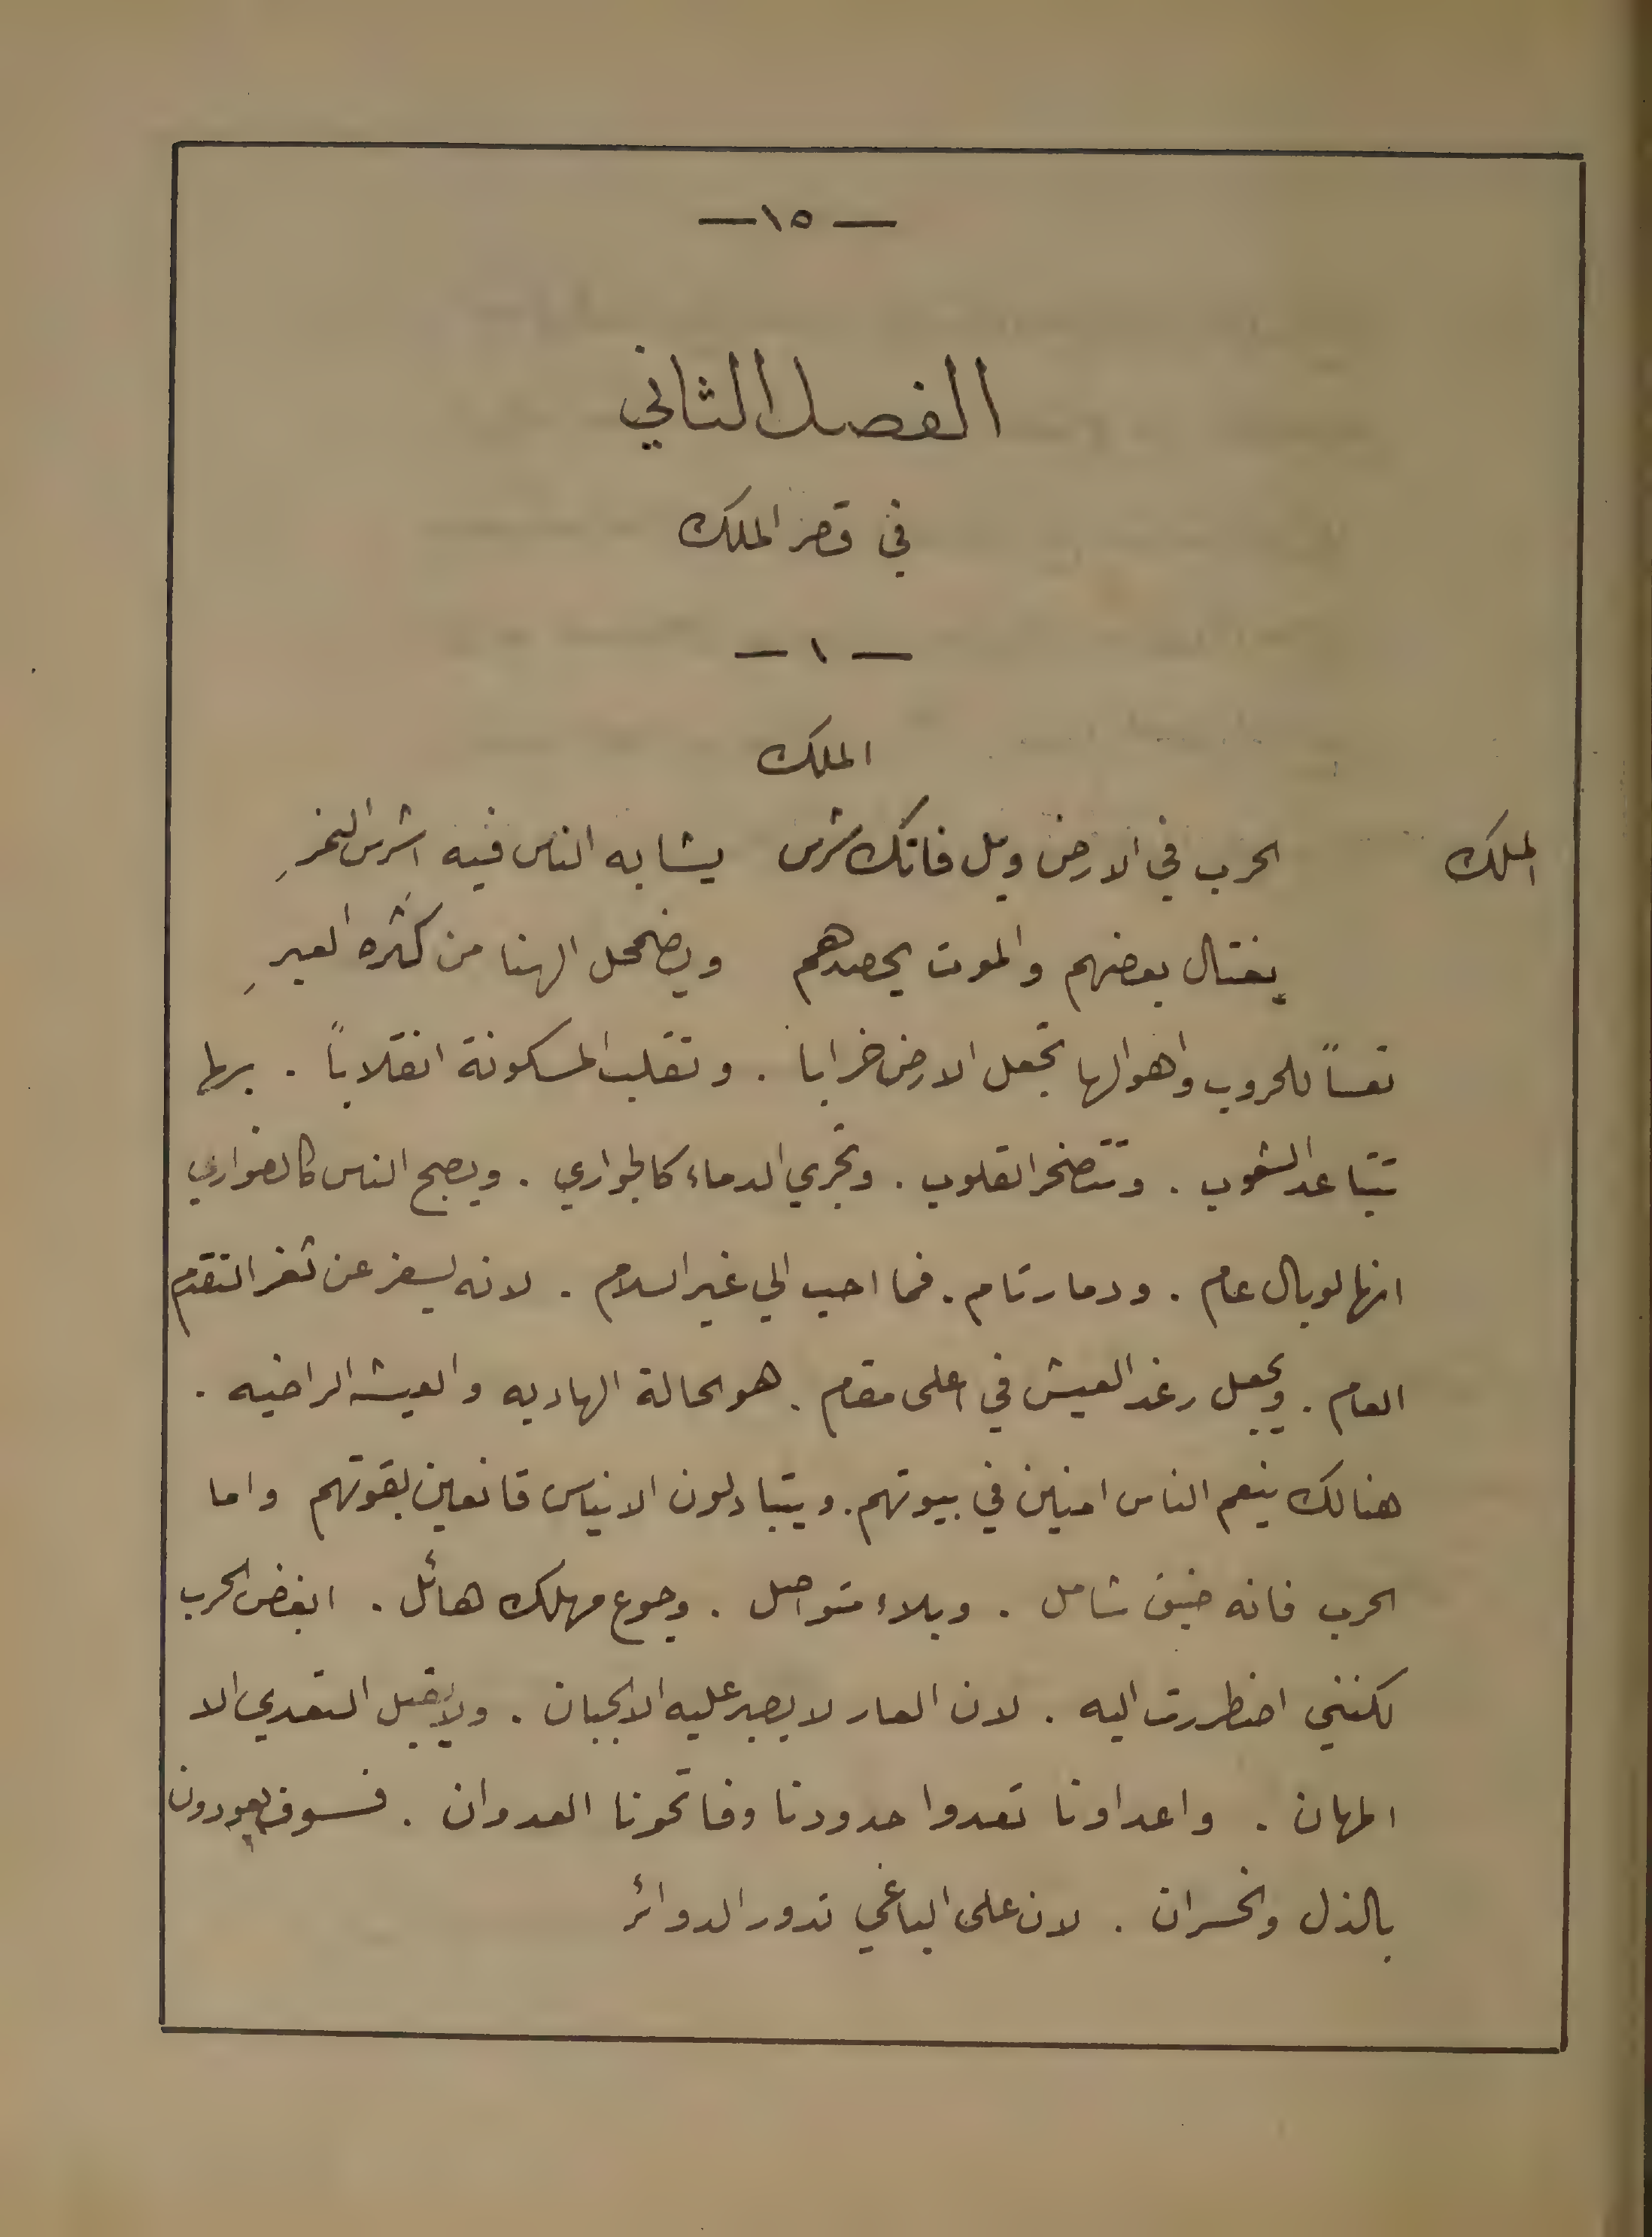 — ١٥ —
الفصل الثاني
في قصر الملك
— ١ —
الملك
الملك الحرب في الارض ويل فاتك شرس يشابه الناس فيه اشرس النمرِ
يغتال بعضهم والموت يحصدهم ويضمحل الهنا من كثره العبرِ
تعساً للحروب واهوالها تجعل الارض خرابا . وتقلب المسكونة انقلاباً . بها
تتباعد الشعوب . وتتضخر القلوب . وتجري الدماء كالجواري . ويصبح الناس كالضواري
انها لوبال عام . ودمار تام . فما احب الي غير السلام . لانه يسفر عن ثغر التقدم
العام . ويجعل رغد العيش في اعلى مقام . هو الحالة الهاديه والعيشه الراضيه .
هنالك ينعم الناس امنين في بيوتهم . ويتبادلون الايناس قانعين بقوتهم واما
الحرب فانه ضيق شامل . وبلاء متواصل . وجوع مهلك هائل . ابغض الحرب
لكنني اضطررت اليه . لان العار لا يصبر عليه الا الجبان . ولا يقبل التعدي الا
المهان . واعداونا تعدوا حدودنا وفاتحونا العدوان . فسوف يعودون
بالذل والخسران . لان على الباغي تدور الدوائر